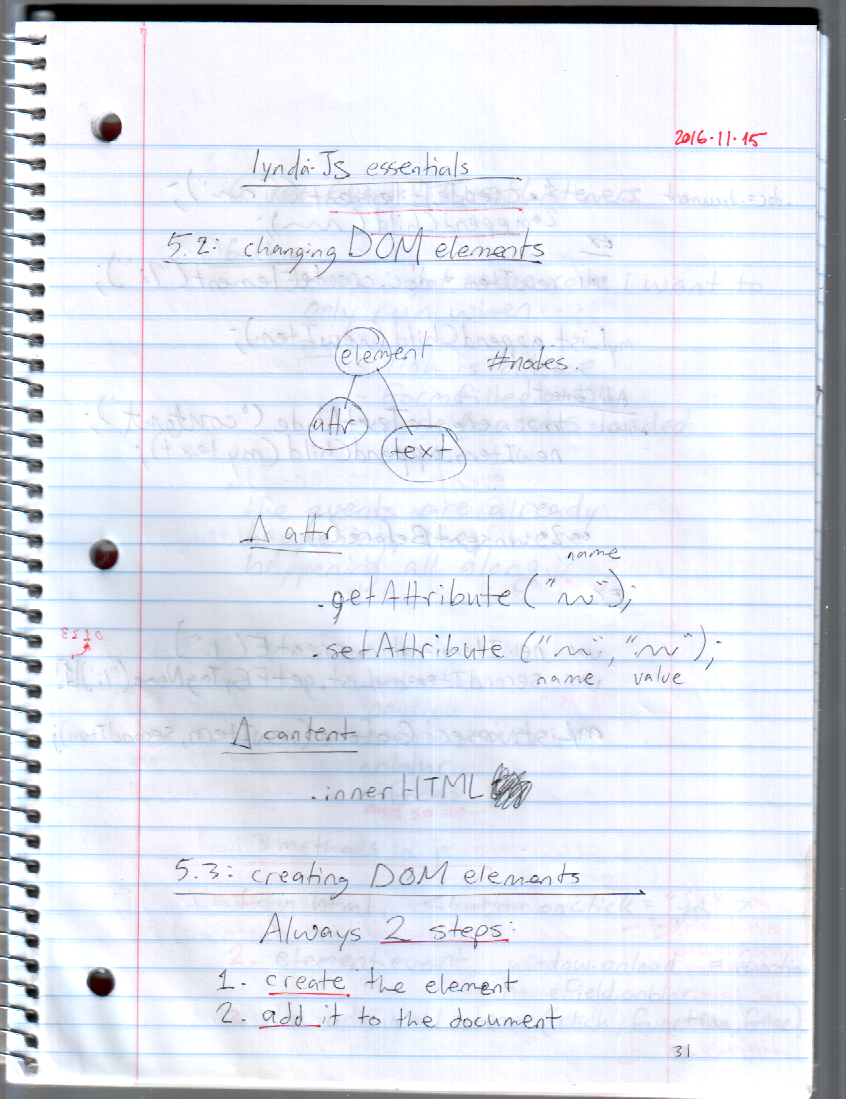 2016-11-15
lynda: JS essentials
5.2: changing DOM elements
element #nodes.
attr
text
Δ attr
name
.getAttribute ("~");
.setAttribute ("~", "~");
name value
Δ content
.innerHTML
5.3: creating DOM elements
Always 2 steps:
1. create the element
2. add it to the document
31